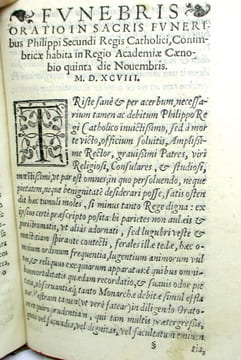 FVNEBRIS
ORATIO IN SACRIS FVNERI
bus Philippi Secundi Regis Catholici, Conim
bricæ habita in Regio Academiæ Cœno
bio quinta die Nouembris.
M. D. XCVIII.
TRiste sanè & per acerbum, necessa
rium tamen ac debitum Philippo Re
gi Catholico inuictissimo, sed à mor
te victo, officium soluitis, Amplissi
me Rector, grauissimi Patres, viri
Religiosi, Consulares, & studiosi,
in quo persoluendo, neque
pietatem, neque benignitatẽ desiderari posse, satis osten
dit hæc tumuli moles, si minus tanto Rege digna: ex
ipsius certè præscripto posita: bi parietes non aulæis &
vt aliàs adornati, sed lugubri veste &
spirante contecti, ferales illæ tedæ, hæc o
ordinum frequentia, lugentium animorum vul
tus, & reliquus exequiarum apparatus: è quibus omni
quædam recordatio, & suauis odor pie
tatis, tanto Monarchæ debitæ
diligendo Orato
prudentiam, qui tam multis
vel dignitas, vel facultatum
§